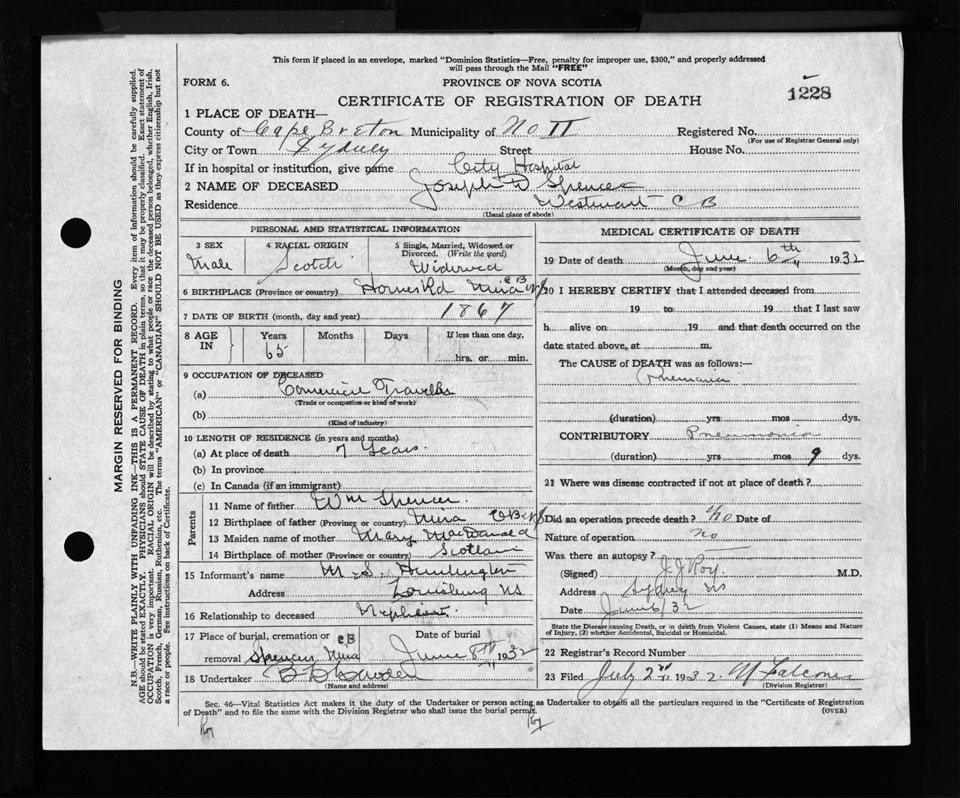 This form if placed in an envelope, marked "Dominion Statistics—Free, penalty for improper use, $300," and properly addressed
will pass through the Mail "FREE"
FORM 6.
PROVINCE OF NOVA SCOTIA
CERTIFICATE OF REGISTRATION OF DEATH
1228
MARGIN RESERVED FOR BINDING
N.B.—WRITE PLAINLY WITH UNFADING INK—THIS IS A PERMANENT RECORD. Every item of information should be carefully supplied.
AGE should be stated EXACTLY. PHYSICIANS should STATE CAUSE OF DEATH in plain terms, so that it may be properly classified. Exact statement of
OCCUPATION is very important. RACIAL ORIGIN will be described by stating to what people or race the deceased person belonged, whether English, Irish,
Scotch, French, German, Russian, Ruthenian, etc. The terms "AMERICAN" or "CANADIAN" SHOULD NOT BE USED as they express citizenship but not
a race or people. See instructions on back of Certificate.
1 PLACE OF DEATH—
County of Cape Breton Municipality of No II Registered No.
(For use of Registrar General only)
City or Town Sydney Street House No.
If in hospital or institution, give name City Hospital
2 NAME OF DECEASED Joseph D Spencer
Residence C B
(Usual place of abode)
PERSONAL AND STATISTICAL INFORMATION
3 SEX Male
4 RACIAL ORIGIN Scotch
5 Single, Married, Widowed or
Divorced. (Write the word)
Widowed
6 BIRTHPLACE (Province or country) Mira CB NS
7 DATE OF BIRTH (month, day and year) 1867
8 AGE IN Years 65 Months Days If less than one day,
hrs. or min.
9 OCCUPATION OF DECEASED
(a) Traveller
(Trade or occupation or kind of work)
(b)
(Kind of industry)
10 LENGTH OF RESIDENCE (in years and months)
(a) At place of death 7 Years.
(b) In province
(c) In Canada (if an immigrant)
Parents
11 Name of father Wm Spencer
12 Birthplace of father (Province or country) Mira CB NS
13 Maiden name of mother Mary MacDonald
14 Birthplace of mother (Province or country) Scotland
15 Informant's name M. S. Huntington
Address Louisburg NS
16 Relationship to deceased Nephew.
17 Place of burial, cremation or CB Date of burial
removal Spencers Mira June 8th 1932
18 Undertaker
(Name and address)
MEDICAL CERTIFICATE OF DEATH
19 Date of death June 6th 1932
(Month, day and year)
20 I HEREBY CERTIFY that I attended deceased from
19 to 19 that I last saw
h alive on 19 and that death occurred on the
date stated above, at m.
The CAUSE of DEATH was as follows:—
(duration) yrs mos dys.
CONTRIBUTORY Pneumonia
(duration) yrs mos 9 dys.
21 Where was disease contracted if not at place of death?
Did an operation precede death? No Date of
Nature of operation no
Was there an autopsy?
(Signed) J J Roy M.D.
Address Sydney NS
Date June 6/32
State the Disease causing Death, or in death from Violent Causes, state (1) Means and Nature
of Injury, (2) whether Accidental, Suicidal or Homicidal.
22 Registrar's Record Number
23 Filed July 2nd 1932.
(Division Registrar)
Sec. 46—Vital Statistics Act makes it the duty of the Undertaker or person acting as Undertaker to obtain all the particulars required in the "Certificate of Registration
of Death" and to file the same with the Division Registrar who shall issue the burial permit.
(OVER)